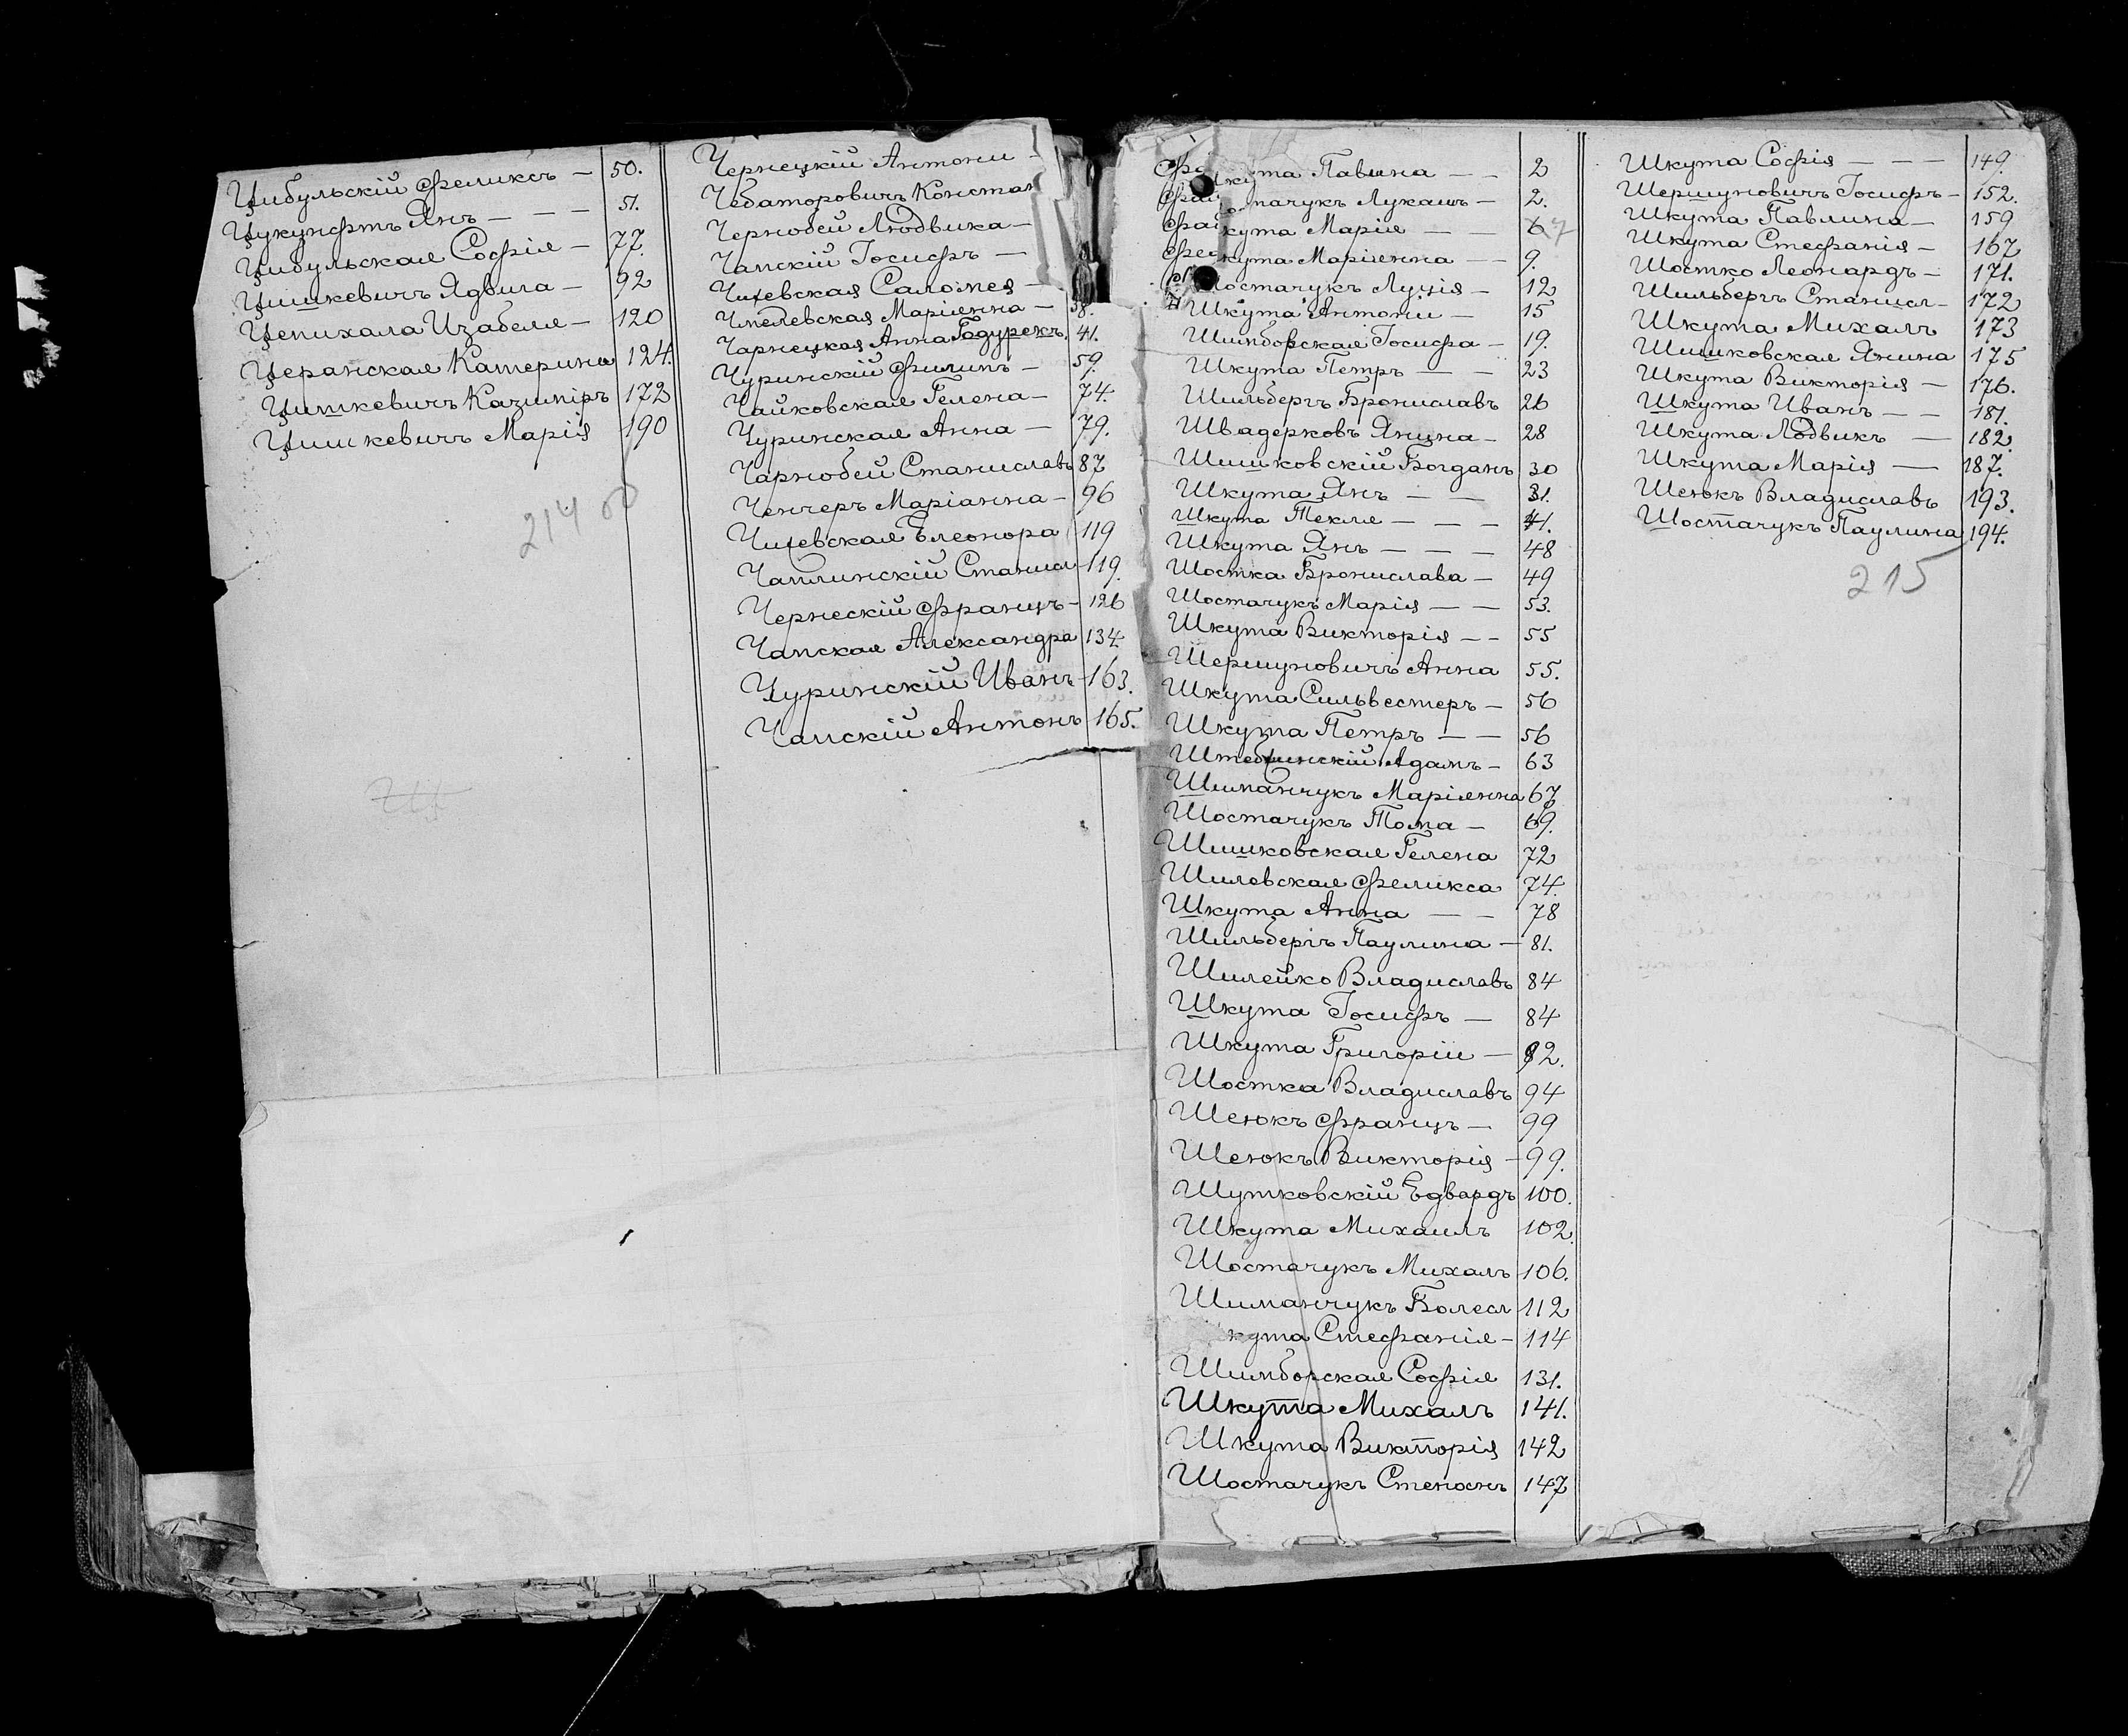 Цибульскій Феликсъ — 50.
Цукунфтъ Янъ — — — 51.
Цибульская Софія — 77.
Цишкевичъ Ядвига — 92
Цепихала Изабеля — 120
Церанская Катерина 124.
Цишкевичъ Казиміръ 172
Цишкевичъ Марія 190
214 об
Чернецкій Антони —
Чебаторовичъ Констан
Чернобей Людвика —
Чапскій Іосифъ —
Чижевская Саломея —
Чмелевская Маріянна — 38.
Чарнецкая Анна Гадурекъ. 41.
Чуринскій Филипъ — 59.
Чайковская Гелена — 74.
Чуринская Анна — 79.
Чарнобей Станиславъ 87
Ченчеръ Маріанна — 96
Чижевская Елеонора 119
Чаплинскій Станисл 119.
Чернескій Францъ — 126
Чапская Александра 134
Чуринскій Иванъ — 163.
Чапскій Антонъ 165.
Шкута Павлина — — 2
Шостачукъ Лукашъ — 2.
кута Марія — — 7
кута Маріянна — — 9.
Шостачукъ Луція — 12
Шкута Антони — 15
Шимборская Іосифа — 19.
Шкута Петръ — — 23
Шильбергъ Брониславъ 26
Швадерковъ Янина — 28
Шишковскій Богданъ 30
Шкута Янъ — — 31.
Шкута Текля — — — 41.
Шкута Янъ — — — 48
Шостка Бронислава — 49
Шостачукъ Марія — — 53.
Шкута Викторія — — 55
Шершуновичъ Анна 55.
Шкута Сильвестеръ — 56
Шкута Петръ — — 56
Штеблинскій Адамъ — 63
Шиманчукъ Маріянна 67
Шостачукъ Тома — 69.
Шишковская Гелена 72
Шилевская Феликса 74.
Шкута Анна — — 78
Шильбергъ Паулина — 81.
Шилейко Владиславъ 84
Шкута Іосифъ — 84
Шкута Григорій — 92.
Шостка Владиславъ 94
Шеюкъ Францъ — 99
Шеюкъ Викторія — 99.
Шутковскій Едвардъ 100.
Шкута Михаилъ 102.
Шостачукъ Михалъ 106.
Шиманчукъ Болесл 112
кута Стефанія — 114
Шимборская Софія 131.
Шкута Михалъ 141.
Шкута Викторія 142
Шостачукъ Стенонъ 147
Шкута Софія — — — 149.
Шершуновичъ Іосифъ — 152.
Шкута Павлина — 159
Шкута Стефанія — 167
Шостко Леонардъ — 171.
Шильбергъ Станисл — 172
Шкута Михалъ 173
Шишковская Янина 175
Шкута Викторія — 176.
Шкута Иванъ — — 181.
Шкута Лодвикъ — 182.
Шкута Марія — 187.
Шеюкъ Владиславъ 193.
Шостачукъ Паулина 194.
215